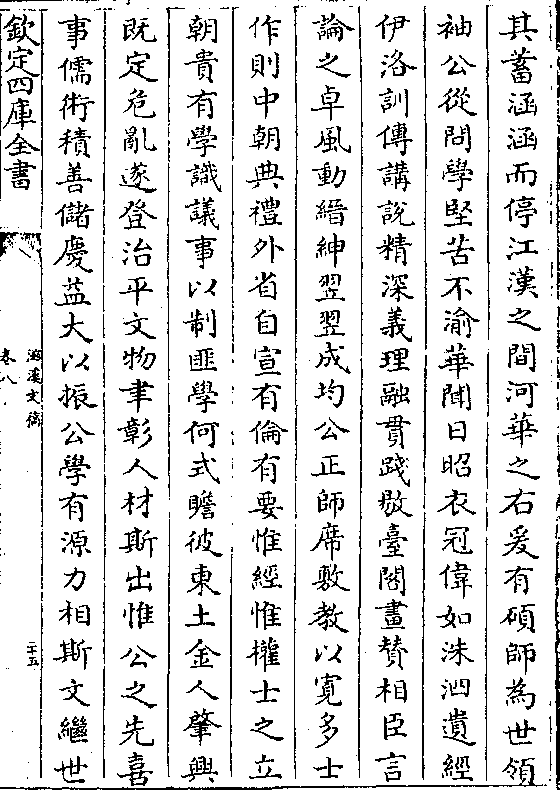 其蓄涵涵而停江漢之間河華之右爰有碩師為世領
袖公從問學堅苦不渝華聞日昭衣冠偉如洙泗遺經
伊洛訓傳講說精深義理融貫踐敭臺閣畫賛相臣言
論之卓風動縉紳翌翌成均公正師席敷教以寛多士
作則中朝典禮外省自宣有倫有要惟經惟權士之立
朝貴有學識議事以制匪學何式瞻彼東土金人肇興
既定危亂遂登治平文物聿彰人材斯出惟公之先喜
事儒術積善儲慶益大以振公學有源力相斯文繼世
欽定四庫全書
滋溪文稿
卷八
二十五